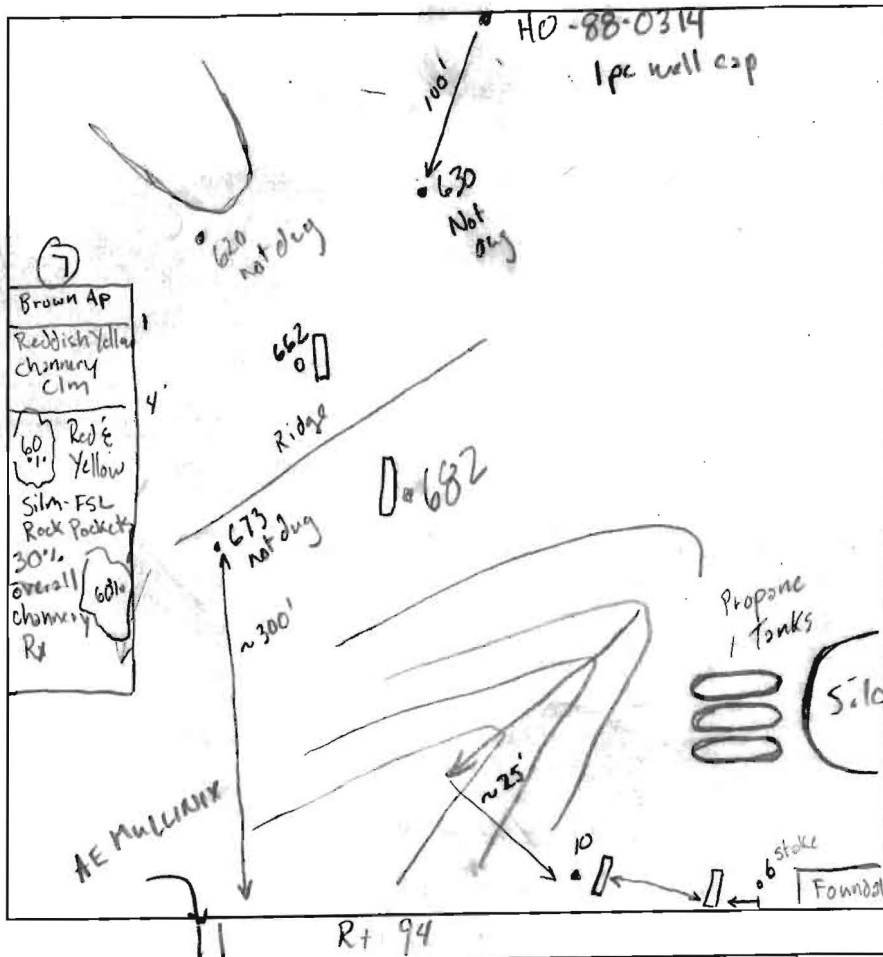 HO-88-0314
1pc well cap
100'
630
Not
dug
620
not dug
7
Brown Ap
1
Reddish Yellow
channery
Clm
4'
60
%
Red &
Yellow
Silm-FSL
Rock Pockets
30%
overall
channery
Rx
60%
662
Ridge
682
673
not dug
~300'
Propane
Tanks
Silo
~25'
AE MULLINIX
10
6 stake
Foundat
Rt 94